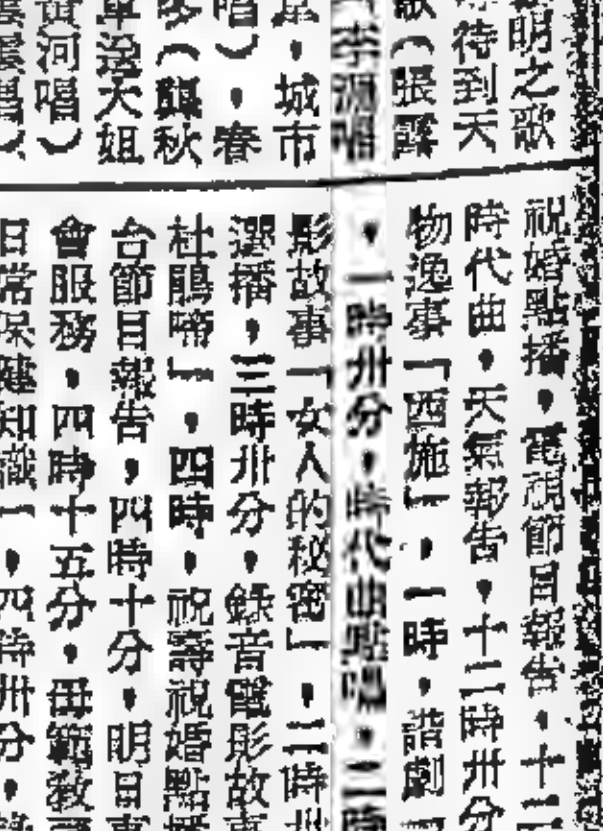 明之歌
待到天
歌（張露
李湄唱
星，城市
唱），春
（龔秋
車送天姐
黃河唱）
祝婚點播，電視節目報告，十二
時代曲，天氣報告，十二時卅分
物逸事「西施」，一時，諧劇
，一時卅分，時代曲點唱，二時
影故事「女人的秘密」，二時卅
選播，三時卅分，錄音電影故事
杜鵑啼」，四時，祝壽祝婚點播
台節目報告，四時十分，明日
會服務，四時十五分，毋範教
日常保健知識」，四時卅分，